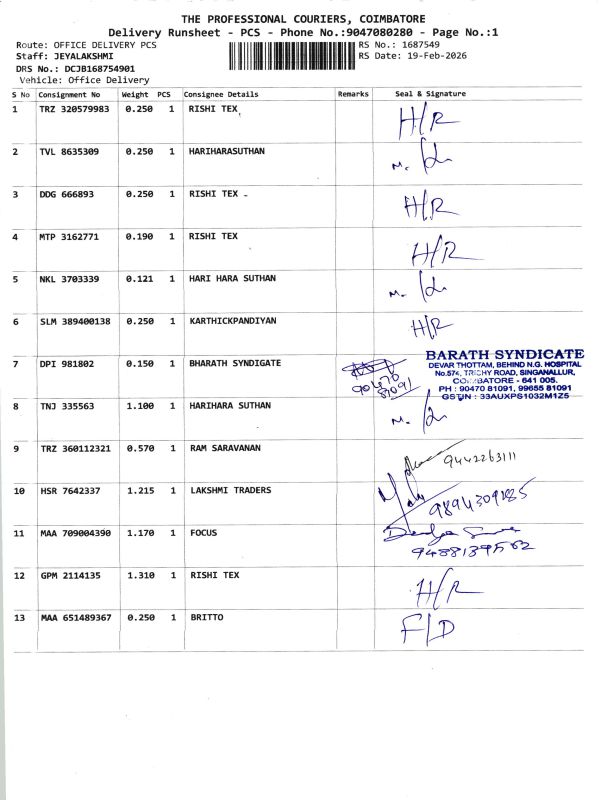 THE PROFESSIONAL COURIERS, COIMBATORE
Delivery Runsheet - PCS - Phone No.:9047080280 - Page No.:1
Route: OFFICE DELIVERY PCS RS No.: 1687549
Staff: JEYALAKSHMI RS Date: 19-Feb-2026
DRS No.: DCJB168754901
Vehicle: Office Delivery
S No Consignment No Weight PCS Consignee Details Remarks Seal & Signature
1 TRZ 320579983 0.250 1 RISHI TEX H/R
2 TVL 8635309 0.250 1 HARIHARASUTHAN M.
3 DDG 666893 0.250 1 RISHI TEX H/R
4 MTP 3162771 0.190 1 RISHI TEX H/R
5 NKL 3703339 0.121 1 HARI HARA SUTHAN M.
6 SLM 389400138 0.250 1 KARTHICKPANDIYAN H/R
7 DPI 981802 0.150 1 BHARATH SYNDIGATE 90470 81091
BARATH SYNDICATE
DEVAR THOTTAM, BEHIND N.G. HOSPITAL
No.574, TRICHY ROAD, SINGANALLUR,
COIMBATORE - 641 005.
PH : 90470 81091, 99655 81091
GSTIN : 33AUXPS1032M1Z5
8 TNJ 335563 1.100 1 HARIHARA SUTHAN M.
9 TRZ 360112321 0.570 1 RAM SARAVANAN 9442263111
10 HSR 7642337 1.215 1 LAKSHMI TRADERS 9894309285
11 MAA 709004390 1.170 1 FOCUS
12 GPM 2114135 1.310 1 RISHI TEX H/R
13 MAA 651489367 0.250 1 BRITTO F/D